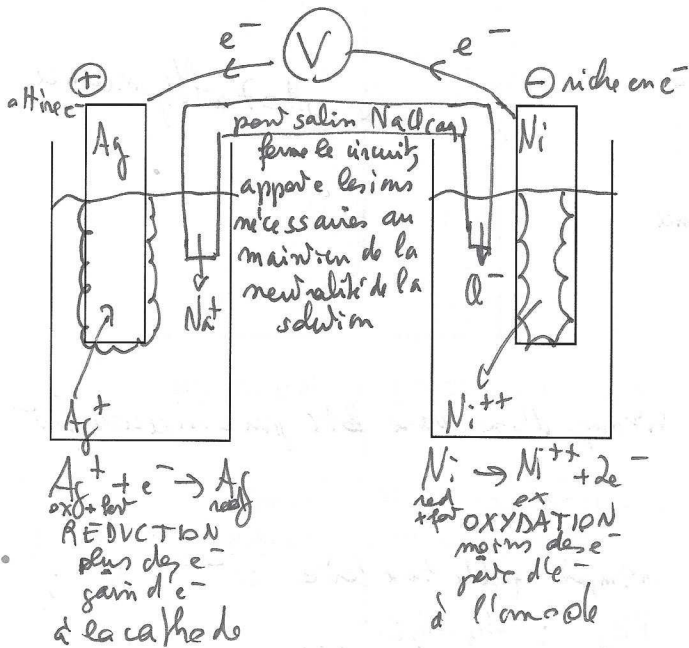 e⁻ V e⁻
⊕ ⊖ riche en e⁻
attire e⁻
Ag Ni
pont salin NaCl(aq)
ferme le circuit,
apporte les ions
nécessaires au
maintien de la
neutralité de la
solution
Na⁺ Cl⁻
Ag⁺ Ni⁺⁺
Ag⁺ + e⁻ → Ag
ox + fort red
REDUCTION
plus des e⁻
gain d'e⁻
à la cathode
Ni → Ni⁺⁺ + 2e⁻
red ox
+ fort OXYDATION
moins des e⁻
perte d'e⁻
à l'anode